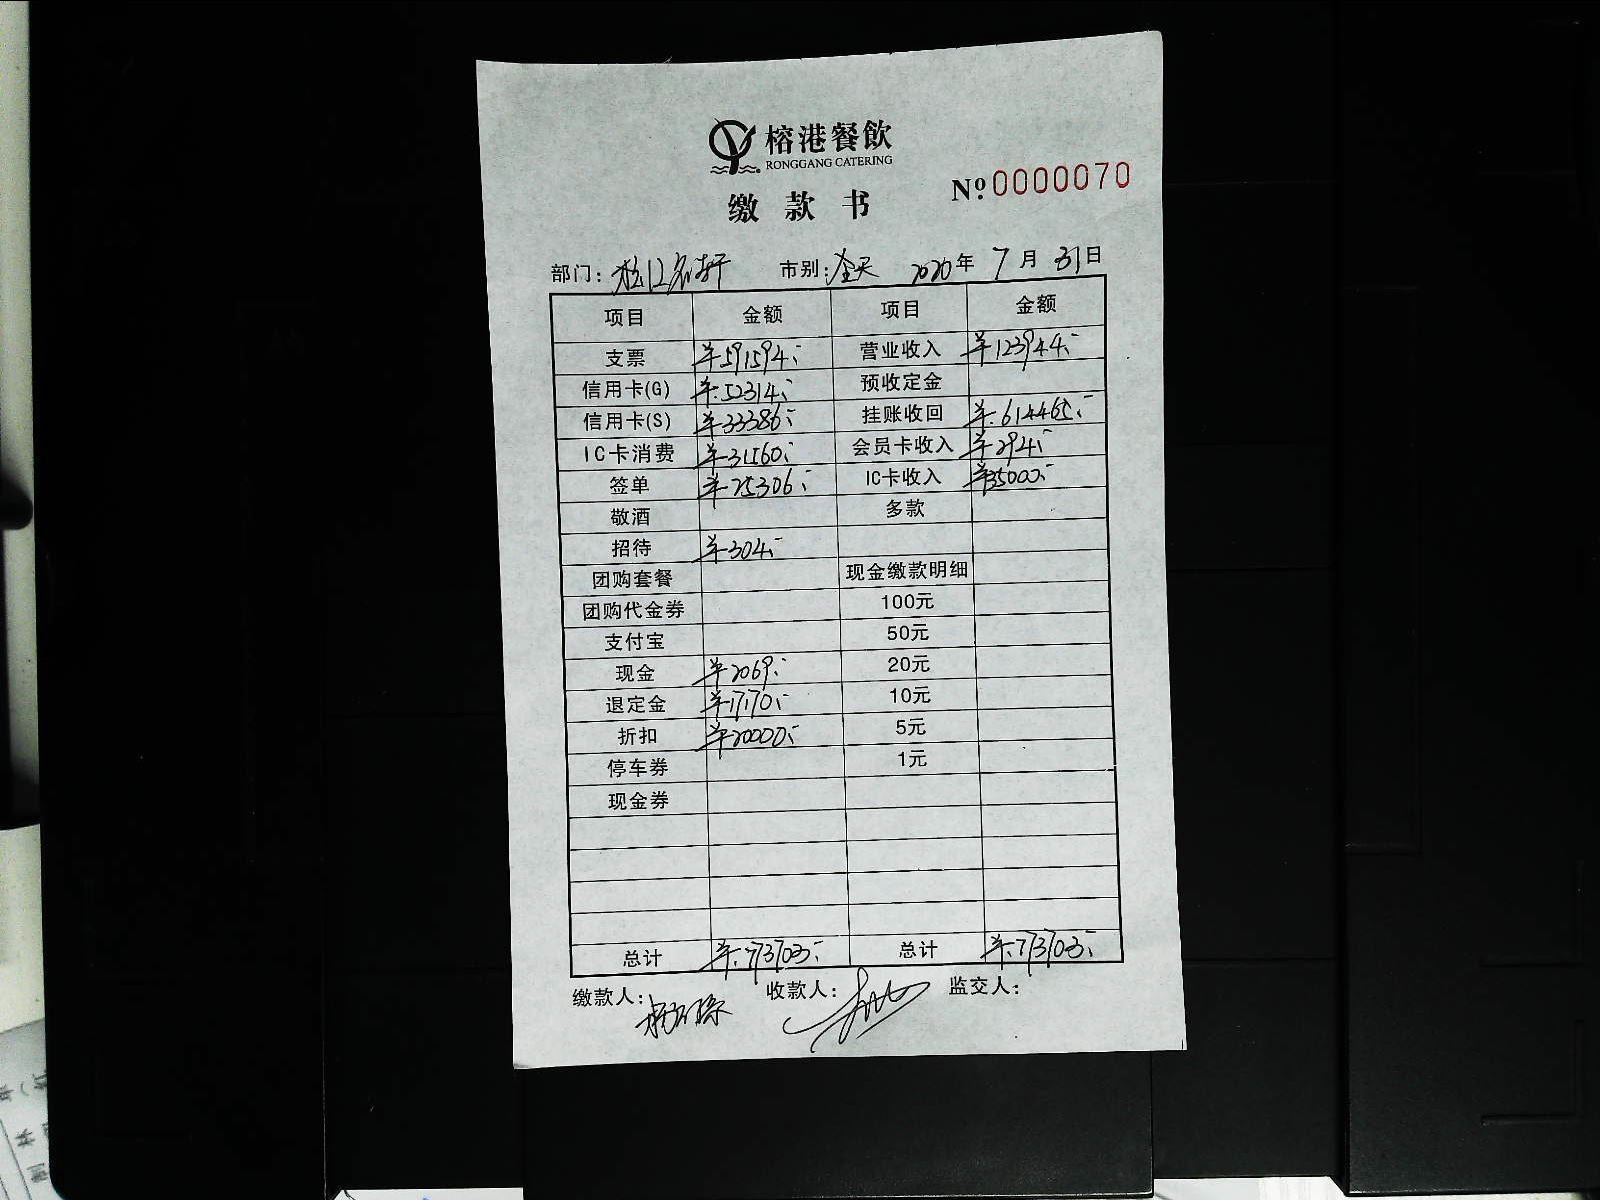 榕港餐飲
RONGGANG CATERING
缴款书
№0000070
部门：松江名轩 市别：全天 2020年7月31日
项目 金额 项目 金额
支票 ¥591594.- 营业收入 ¥123944.-
信用卡(G) ¥52314.- 预收定金
信用卡(S) ¥33386.- 挂账收回 ¥614465.-
IC卡消费 ¥31560.- 会员卡收入 ¥294.-
签单 ¥25306.- IC卡收入 ¥35000.-
敬酒 多款
招待 ¥304.-
团购套餐 现金缴款明细
团购代金券 100元
支付宝 50元
现金 ¥2069.- 20元
退定金 ¥17170.- 10元
折扣 ¥20000.- 5元
停车券 1元
现金券
总计 ¥773703.- 总计 ¥773703.-
缴款人： 收款人： 监交人：